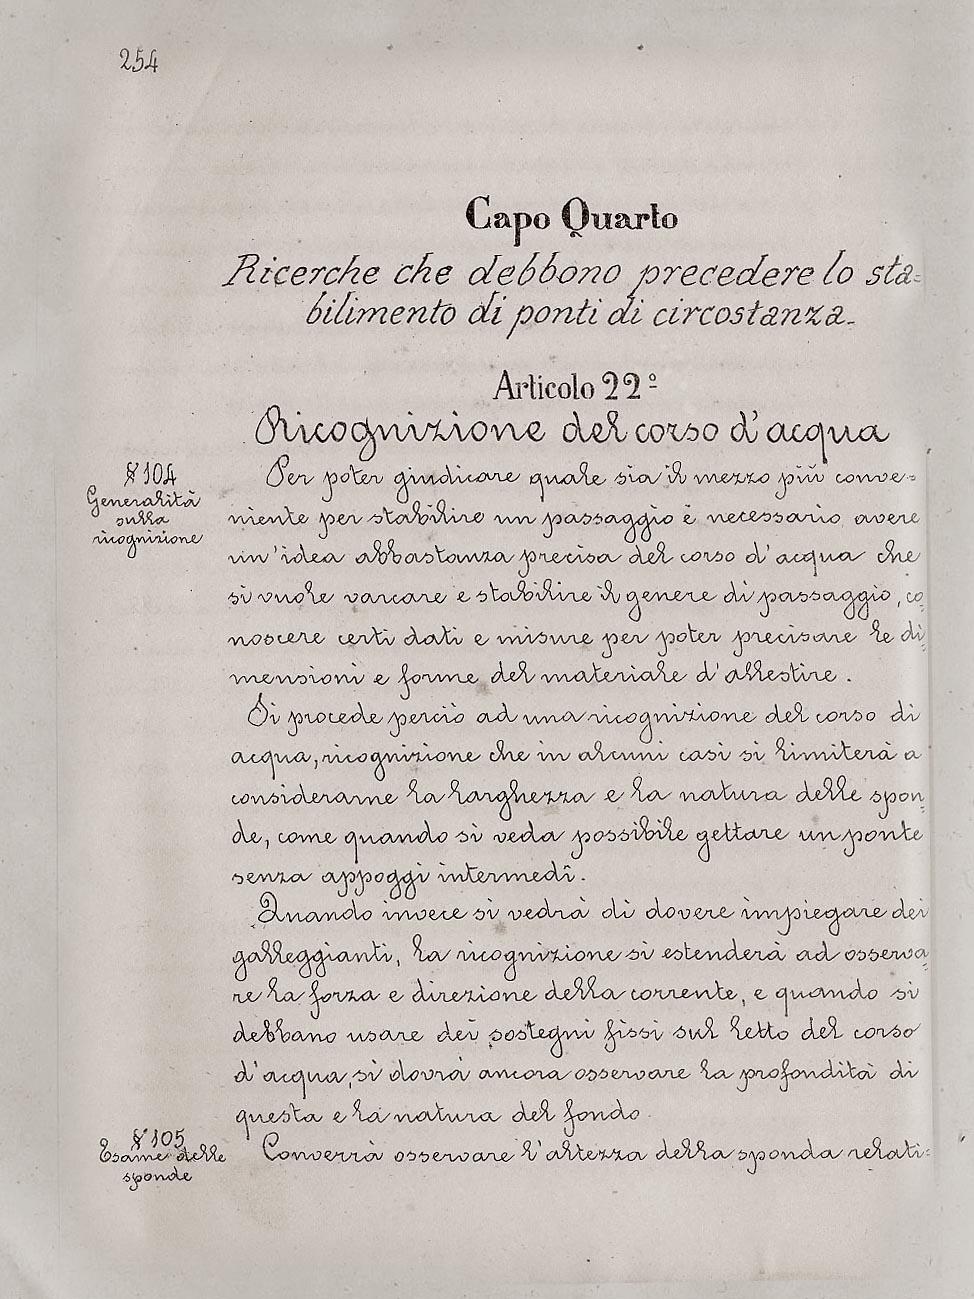 254
Capo Quarto
Ricerche che debbono precedere lo sta=
bilimento di ponti di circostanza.
Articolo 22º
Ricognizione del corso d'acqua
§ 104
Generalità
sulla
ricognizione
Per poter giudicare quale sia il mezzo più conve=
niente per stabilire un passaggio è necessario avere
un'idea abbastanza precisa del corso d'acqua che
si vuole varcare e stabilire il genere di passaggio, co=
noscere certi dati e misure per poter precisare le di=
mensioni e forme del materiale d'allestire.
Si procede perciò ad una ricognizione del corso di
acqua, ricognizione che in alcuni casi si limiterà a
considerarne la larghezza e la natura delle spon=
de, come quando si veda possibile gettare un ponte
senza appoggi intermedî.
Quando invece si vedrà di dovere impiegare dei
galleggianti, la ricognizione si estenderà ad osserva=
re la forza e direzione della corrente, e quando si
debbano usare dei sostegni fissi sul letto del corso
d'acqua, si dovrà ancora osservare la profondità di
questa e la natura del fondo.
§ 105
Esame delle
sponde
Converrà osservare l'altezza della sponda relati=